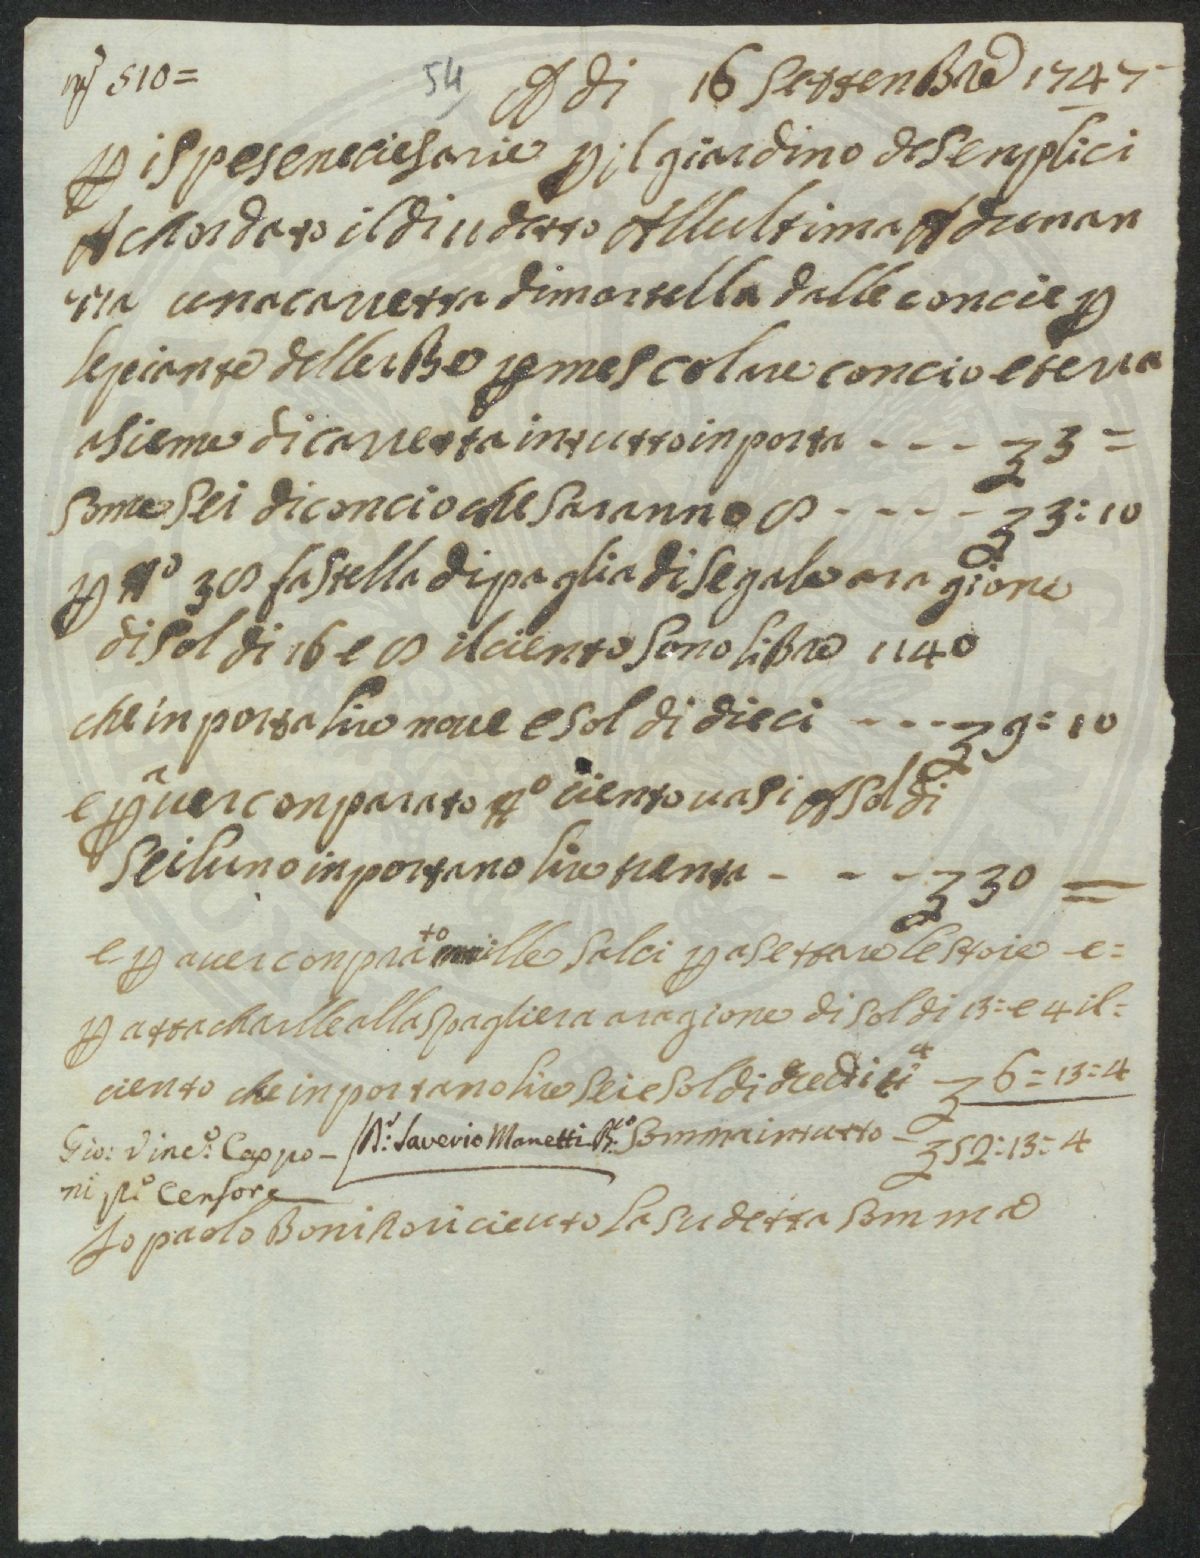 nº 510=
54
A di 16 Settenbre 1747
p ispese neciesarie p il giardino de Senplici
Achordato il di u detto Allultima Adunan
zia una carretta di mortella dalle concie p
le piante dellerbe p mescolare concio e terra
asieme di carretta in tutto inporta - - - ʒ 3 =
Some Sei di concio che saranno 8 - - - - - ʒ 3: 10
p nº 38 fastella di paglia di Segale a ragione
di Soldi 16 e 8 il ciento Sono libre 1140
che inporta lire nove e Soldi dieci - - - ʒ 9: 10
e p aver conparato nº ciento vasi A Soldi
Sei luno inportano lire trenta - - - - ʒ 30 =
e p aver conprato mille Salci p asettare le Stoie e=
p attacharlle alla Spagliera a ragione di Soldi 13= e 4 il=
ciento che inportano lire Sei e Soldi tredici 4 ʒ 6=13=4
Gio: Vinc.º Cappo- D.r Saverio Manetti Somma in tutto - ʒ 52:13:4
ni p.º Censore
Io paolo Boni o riciento la sudetta Somma